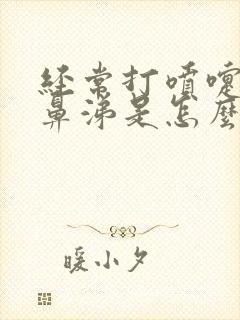 經常打噴嚏
鼻涕是怎麼
暖小夕